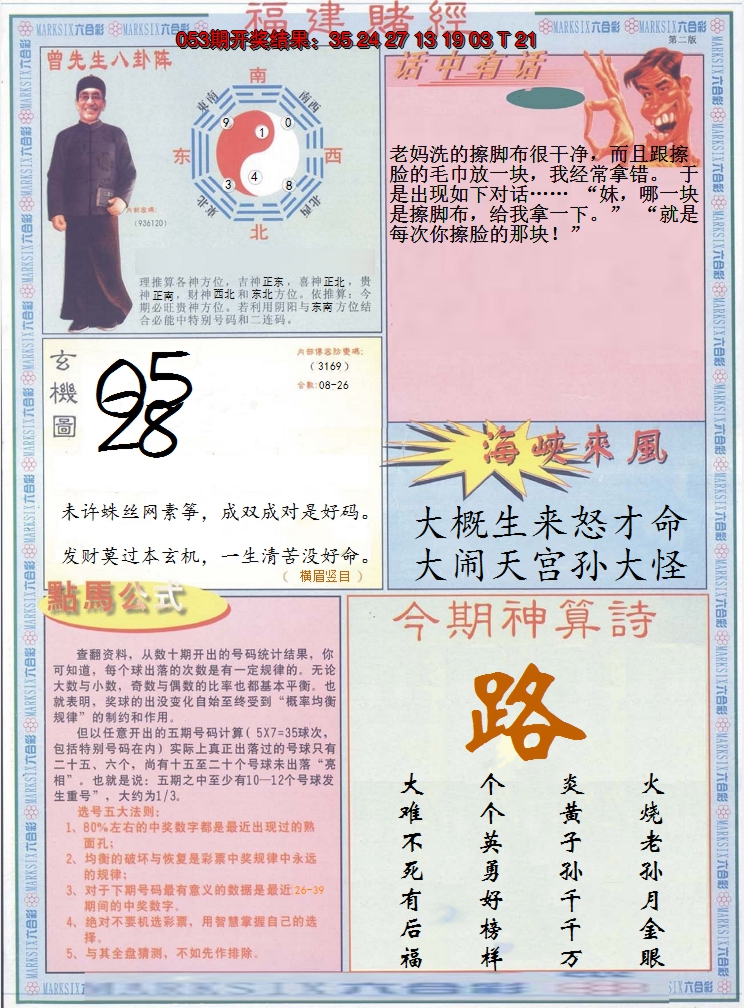 福建賭經
053期开奖结果：35 24 27 13 19 03 T 21
第二版
MARKSIX六合彩
曾先生八卦阵
南
東南
南西
东
西
東北
北西
北
9
1
0
3
4
8
(936120)
理推算各神方位，吉神正东，喜神正北，贵
神正南，财神西北和东北方位。依推算：今
期必旺贵神方位。若利用阴阳与东南方位结
合必能中特别号码和二连码。
话中有话
老妈洗的擦脚布很干净，而且跟擦
脸的毛巾放一块，我经常拿错。 于
是出现如下对话…… “妹，哪一块
是擦脚布，给我拿一下。” “就是
每次你擦脸的那块！”
玄機圖
05
28
(3169)
合数:08-26
未许蛛丝网素筝，成双成对是好码。
发财莫过本玄机，一生清苦没好命。
（ 横眉竖目 ）
海峡來風
大概生来怒才命
大闹天宫孙大怪
點馬公式
查翻资料，从数十期开出的号码统计结果，你
可知道，每个球出落的次数是有一定规律的。无论
大数与小数，奇数与偶数的比率也都基本平衡。也
就表明，奖球的出没变化自始至终受到“概率均衡
规律”的制约和作用。
但以任意开出的五期号码计算( 5X7=35球次，
包括特别号码在内）实际上真正出落过的号球只有
二十五、六个，尚有十五至二十个号球未出落“亮
相”。也就是说：五期之中至少有10—12个号球发
生重号”，大约为1/3。
选号五大法则：
1、80%左右的中奖数字都是最近出现过的熟
面孔；
2、均衡的破坏与恢复是彩票中奖规律中永远
的规律；
3、对于下期号码最有意义的数据是最近26-39
期间的中奖数字。
4、绝对不要机选彩票，用智慧掌握自己的选
择。
5、与其全盘猜测，不如先作排除。
今期神算詩
路
火烧老孙月金眼
炎黄子孙千千万
个个英勇好榜样
大难不死有后福